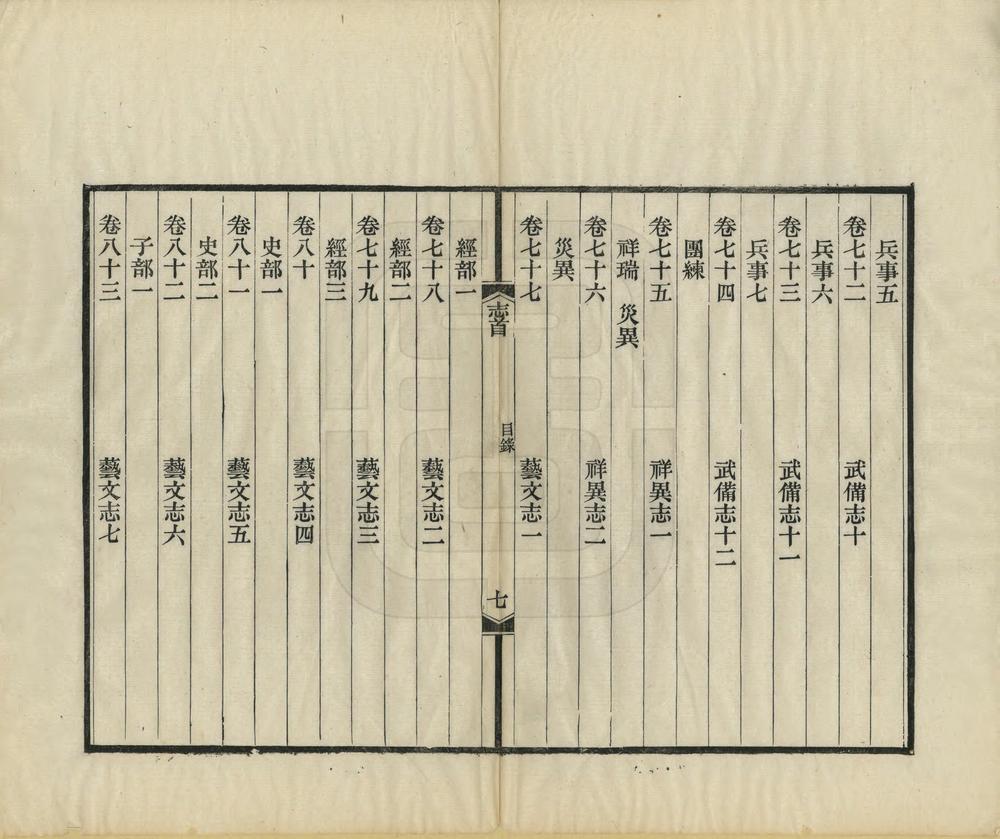 兵事五
卷七十二　武備志十
兵事六
卷七十三　武備志十一
兵事七
卷七十四　武備志十二
團練
卷七十五　祥異志一
祥瑞　災異
卷七十六　祥異志二
災異
卷七十七　藝文志一
志首　目錄　七
經部一
卷七十八　藝文志二
經部二
卷七十九　藝文志三
經部三
卷八十　藝文志四
史部一
卷八十一　藝文志五
史部二
卷八十二　藝文志六
子部一
卷八十三　藝文志七